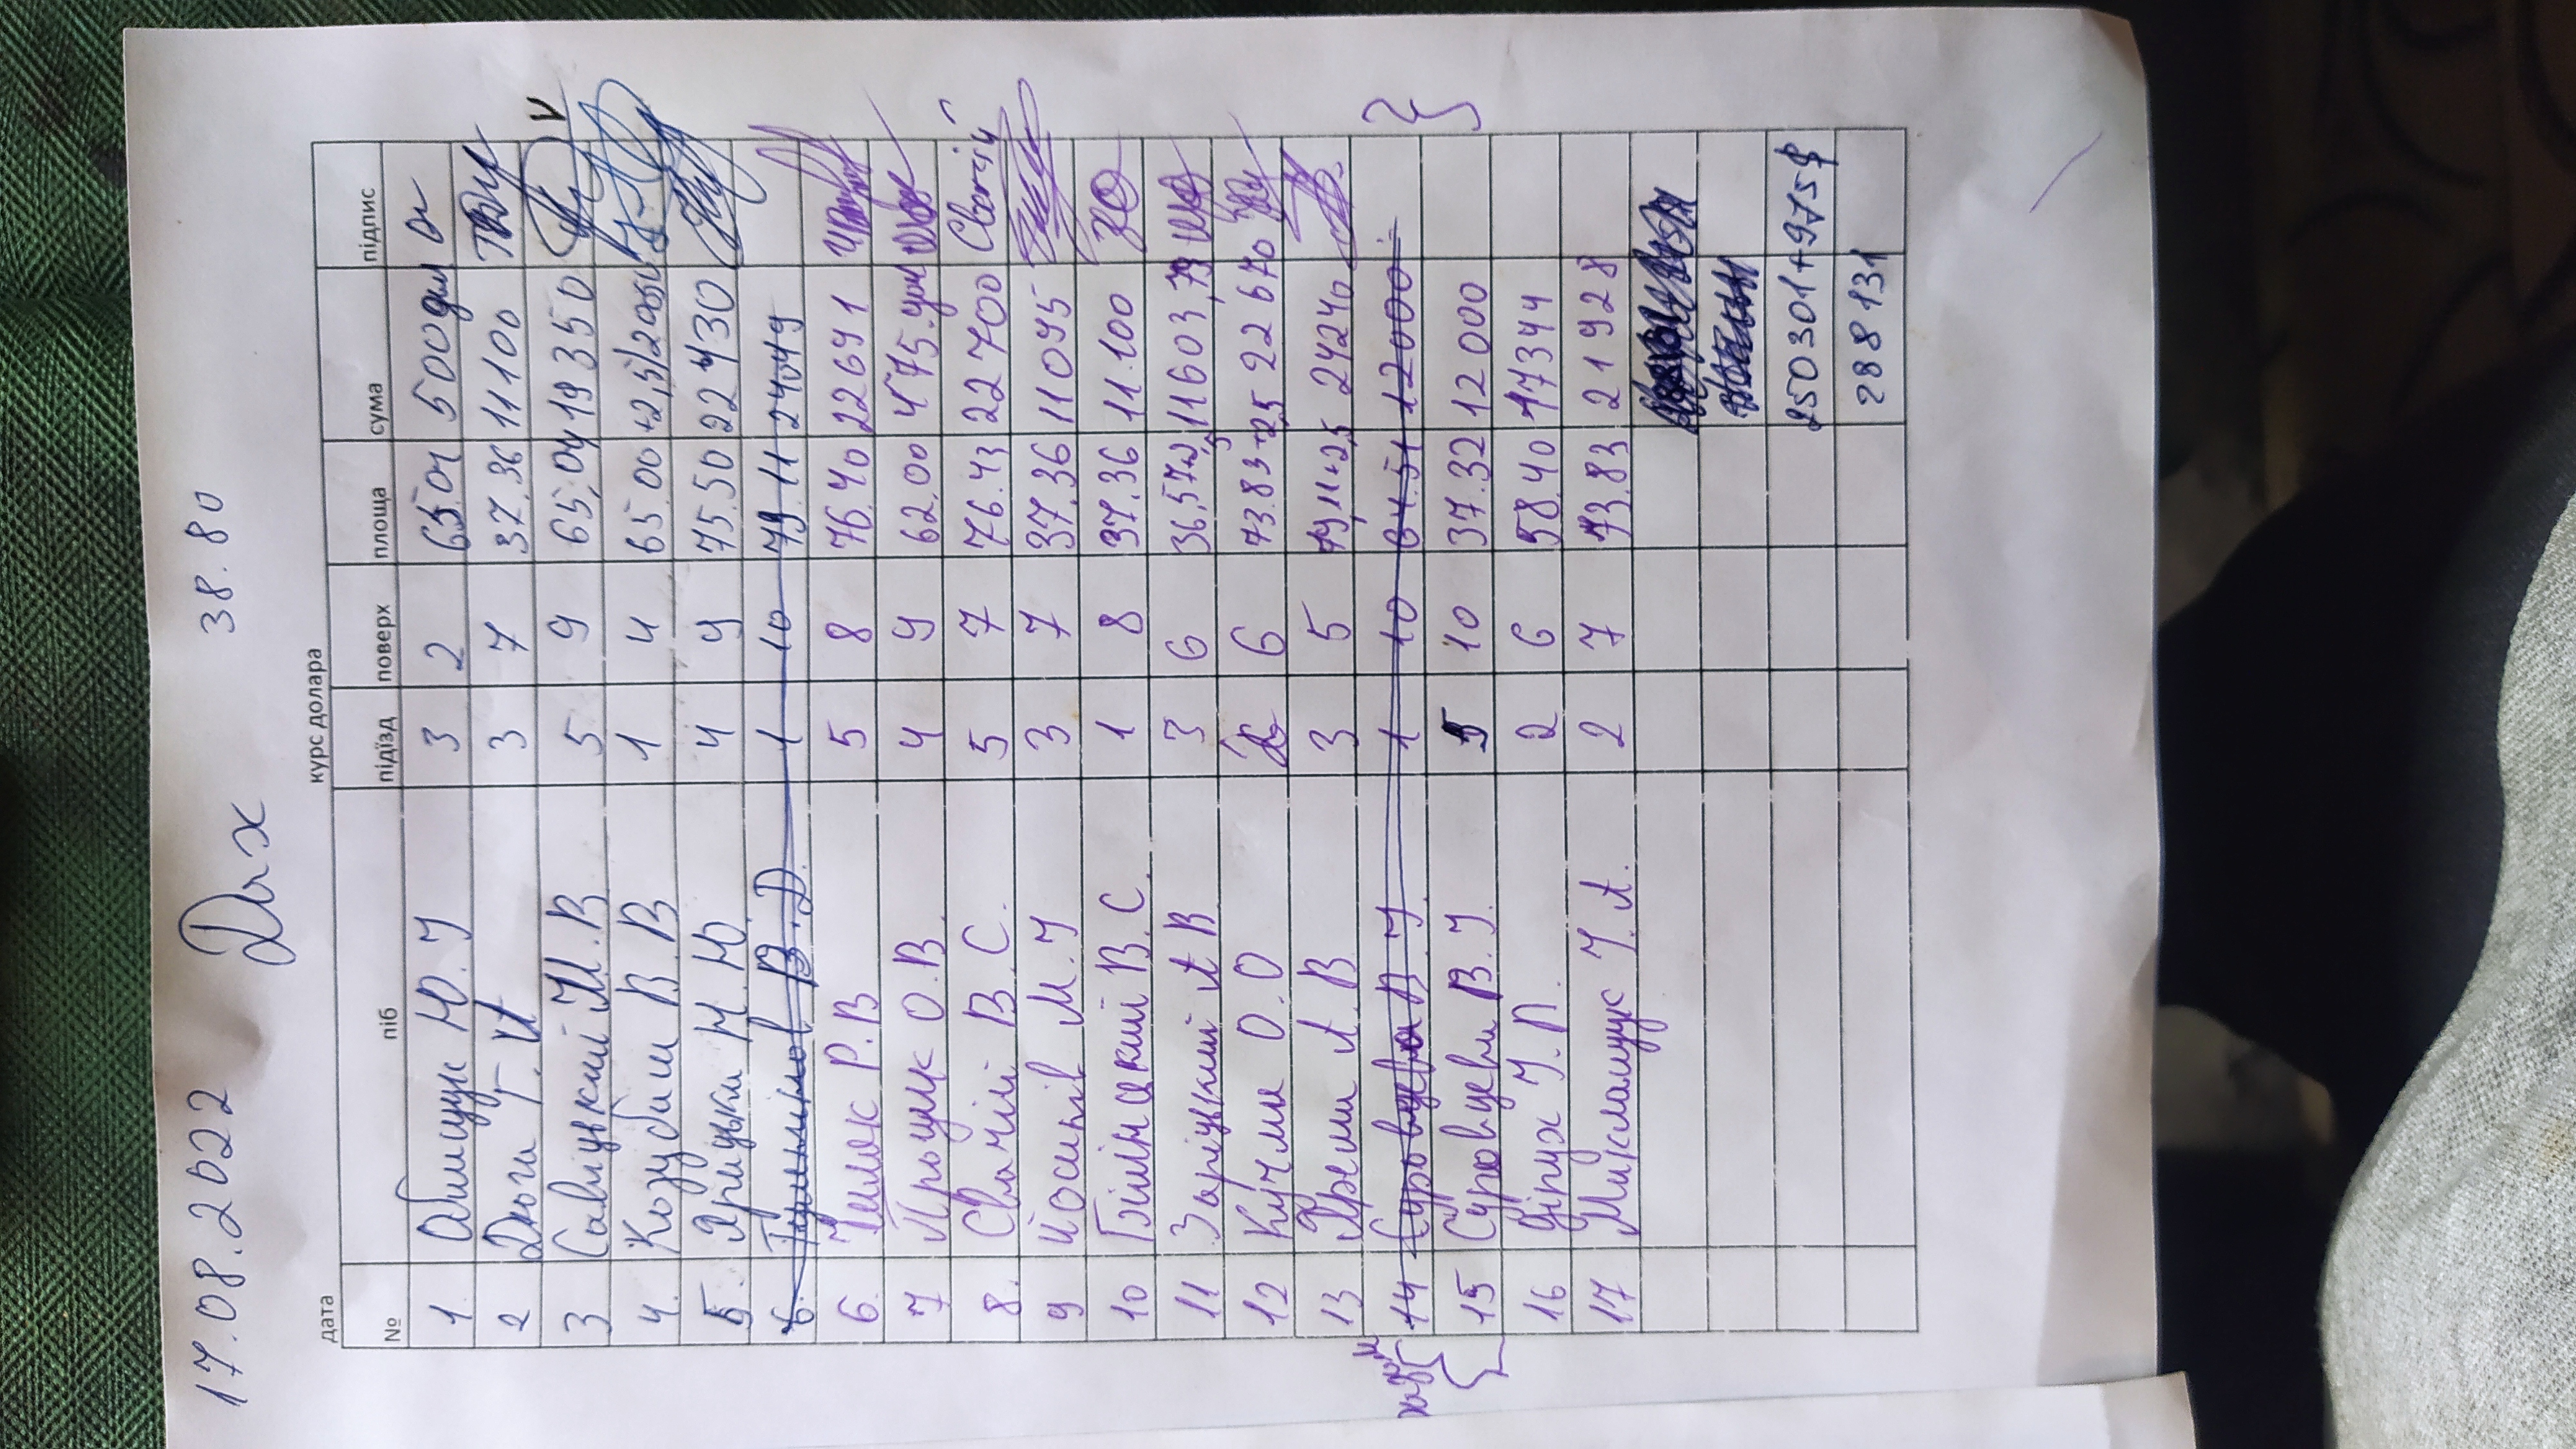 17.08.2022 Дах 38.80
дата курс долара
№ піб підїзд поверх площа сума підпис
1. Ю. І 3 2 65.04 500 дол
2 Дюга Г. И 3 7 37.36 11100
3 Савіцький М. В 5 9 65,04 19350 V
4. Козубаш В. В 1 4 65.00 +2,5
5. Ярицька Н. Ю. 4 9 75.50 22430
6. В. Д. 1 10 79.11 24049
6. Чиляк Р. В 5 8 76.40 22691
7 Прощук О. В. 4 9 62.00 475. дол
8. Свачій В. С. 5 7 76.43 22700 Свачій
9 Йосипів М. І 3 7 37.36 11095
10 Білінський В. С. 1 8 37.36 11.100
11 Заріцький А В 3 6 36,57+2,5 11603,79
12 Кучма О. О 6 73.83+2,5 22670
13 Ярема А. В 3 5 79,11+2,5 24240
14 Суровцева В. І. 1 10 64.51 12000
15 Суровцева В. І. 5 10 37.32 12000
16 Діпух І. П. 2 6 58.40 17344
17 Миклащук І. А. 2 7 73.83 21928
250301+975$
288131